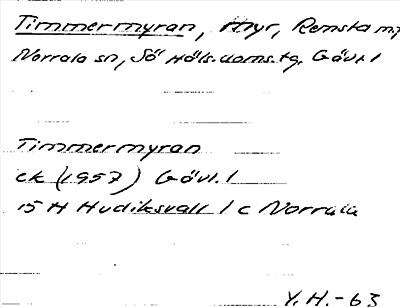 Timmermyran, myr, Remsta m.fl
Norrala sn, Sö Häls.doms.tg, Gävl. l
Timmermyran
ek (1957) Gävl. l
15 H Hudiksvall l c Norrala
Y.H.-63